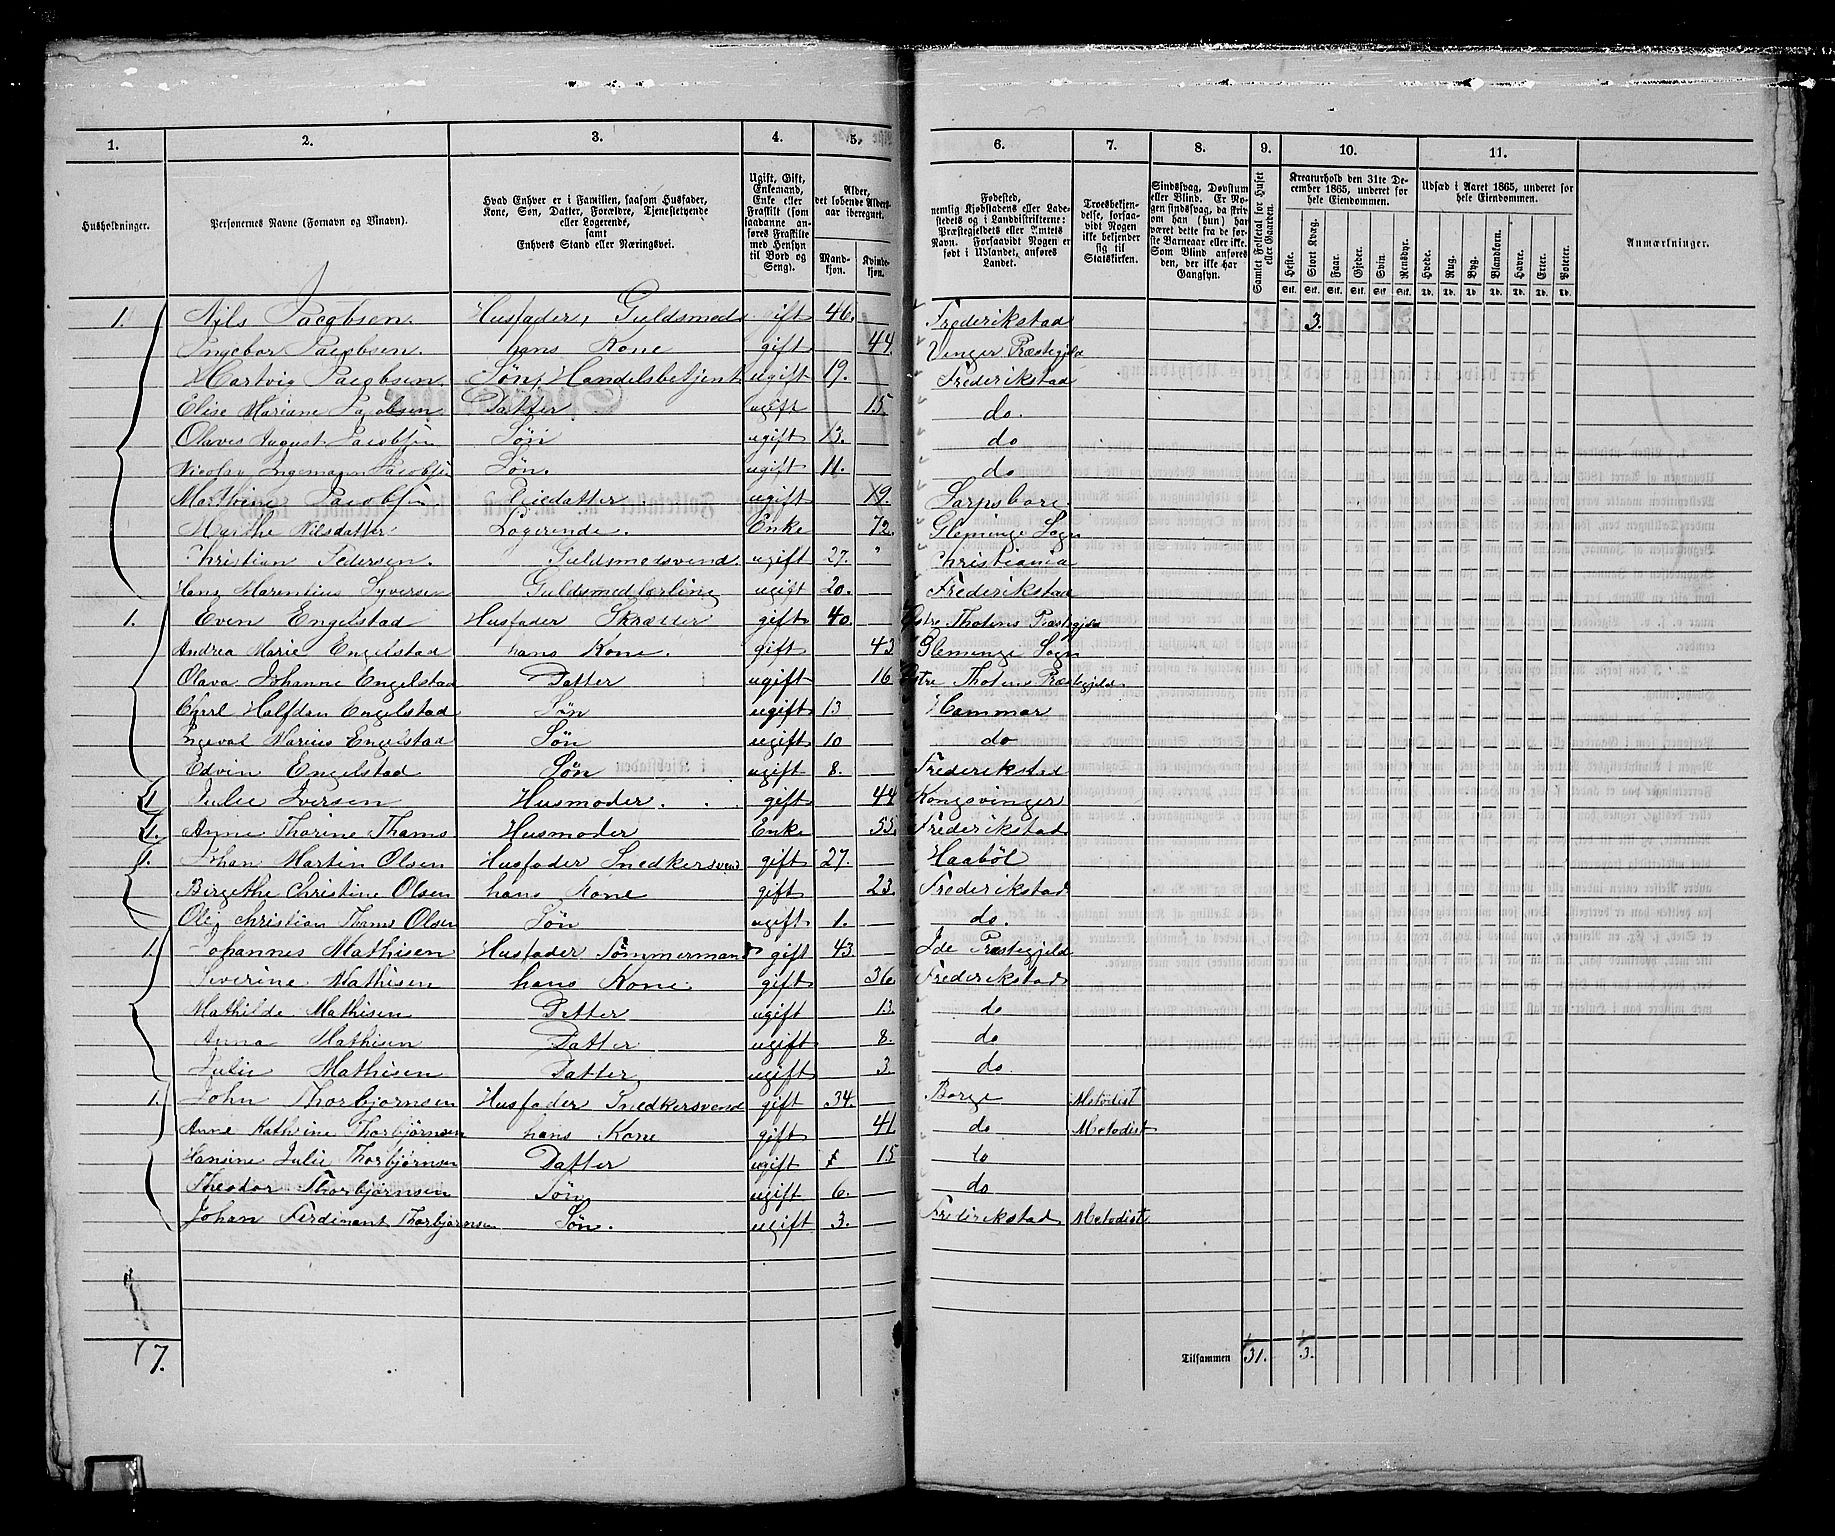 1. 2. 3. 4. 5. 6. 7. 8. 9. 10. 11.
Husholdninger.
Personernes Navne (Fornavn og Tilnavn).
Hvad Enhver er i Familien, saasom Husfader, Kone, Søn, Datter, Forældre, Tjenestetyende eller Logerende, samt Enhvers Stand eller Næringsvei.
Ugift, Gift, Enkemand, Enke eller Fraskilt (som saadanne anføres Fraskilte med Hensyn til Bord og Seng).
Alder, det løbende Alders-aar iberegnet.
Mand-kjøn. Kvinde-kjøn.
Fødested, nemlig Kjøbstadens eller Ladestedets og i Landdistrikterne: Præstegjeldets eller Amtets Navn. Forsaavidt Nogen er født i Udlandet, anføres Landet.
Troesbekjendelse, forsaavidt Nogen ikke bekjender sig til Statskirken.
Sindssvag, Døvstum eller Blind. Er Nogen sindssvag, da skriv om han (hun) har været dette fra de første Barneaar eller ikke. Som Blind anføres den, der ikke har Gangsyn.
Samlet Folketal for Huset eller Gaarden.
Kreaturhold den 31te December 1865, underet for hele Eiendommen.
Heste. Stort Kvæg. Faar. Gjeder. Svin. Rensdyr.
Stk. Stk. Stk. Stk. Stk. Stk.
Udsæd i Aaret 1865, underet for hele Eiendommen.
Hvede. Rug. Byg. Blandkorn. Havre. Erter. Poteter.
Td. Td. Td. Td. Td. Td. Td.
Anmærkninger.
1. Nils Jacobsen. Husfader, Guldsmed gift 46. Frederikstad 3.
Ingebor Jacobsen. hans Kone gift 44. Vinger Præstegjeld
Hartvig Jacobsen. Søn, Handelsbetjent ugift 19. Frederikstad
Elise Mariane Jacobsen Datter ugift 15 do.
Olaves August Jacobsen Søn ugift 13. do
Nicolay Ingemann Jacobsen Søn. ugift 11. do
Marthine Jacobsen Pleiedatter ugift 19. Sarpsborg
Marthe Nilsdatter Logerende. Enke 72. Gleminge Sogn
Christian Pedersen. Guldsmedsvend. ugift 27. " Christiania
Hans Marentius Syversen Guldsmedlærling ugift 20. Frederikstad
1. Even Engelstad Husfader Skrædder gift 40. Østre Thotens Præstegjeld
Andrea Marie Engelstad hans Kone. gift 43 Gleminge Sogn
Olava Johanne Engelstad Datter ugift 16 Østre Thotens Præstegjeld
Carl Halfdan Engelstad Søn ugift 13 Hammar
Ingeval Marius Engelstad Søn ugift 10 do
Edvin Engelstad Søn ugift 8. Frederikstad
1 Julie Iversen Husmoder. gift 44 Kongsvinger
1. Anne Thorine Thams Husmoder Enke 55. Frederikstad
1. Johan Martin Olsen Husfader Snedkersvend gift 27. Haaböl
Birgethe Christine Olsen hans Kone gift 23 Frederikstad
Olej Christian Thams Olsen Søn ugift 1. do
1. Johannes Mathisen Husfader Tømmermand gift 43. Ide Præstegjeld
Severine Mathisen hans Kone gift 36 Frederikstad
Mathilde Mathisen Datter ugift 13. do
Anna Mathisen Datter ugift 8. do
Julie Mathisen Datter ugift 3. do.
1. John Thorbjørnsen Husfader Snedkersvend gift 34. Borge Metodist
Anne Kathrine Thorbjørnsen hans Kone gift 41 do Metodist
Hansine Julie Thorbjørnsen Datter ugift 15 do
Theodor Thorbjørnsen Søn ugift 6. do
Johan Ferdinant Thorbjørnsen Søn. ugift 3. Frederikstad Metodist
7. Tilsammen 31. 3.